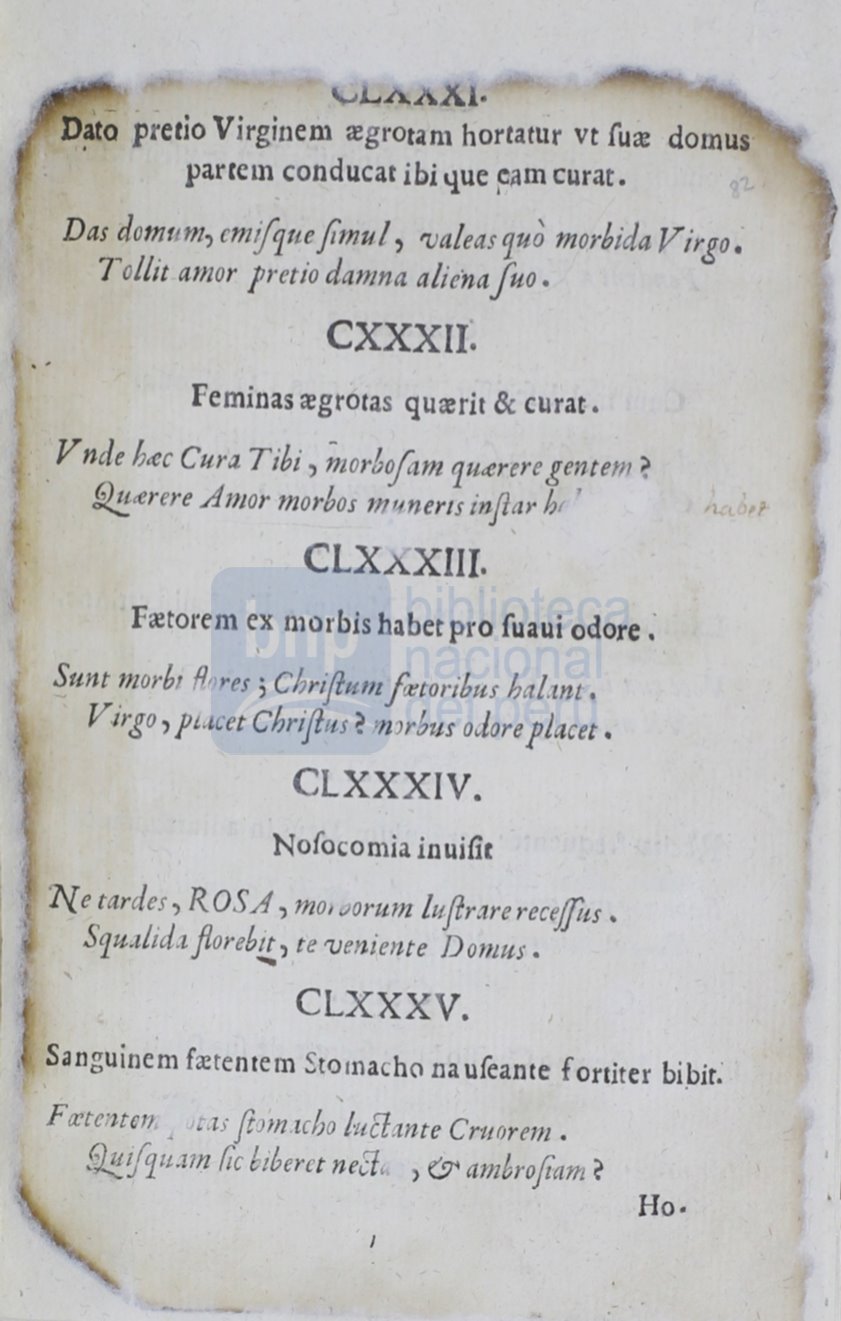 CLXXXI.
Dato pretio Virginem ægrotam hortatur vt ſuæ domus
82
partem conducat ibi que eam curat.
Das domum, emiſque ſimul, valeas quò morbida Virgo.
Tollit amor pretio damna aliena ſuo.
CXXXII.
Feminas ægrotas quærit & curat.
Vnde hæc Cura Tibi, morboſam quærere gentem?
Quærere Amor morbos muneris inſtar
habet
CLXXXIII.
Fætorem ex morbis habet pro ſuaui odore.
Sunt morbi flores; Chriſtum fætoribus halant.
Virgo, placet Chriſtus? morbus odore placet.
CLXXXIV.
Noſocomia inuiſit
Ne tardes, ROSA, morborum luſtrare receſſus.
Squalida florebit, te veniente Domus.
CLXXXV.
Sanguinem fætentem Stomacho nauſeante fortiter bibit.
Fætentem ſtomacho luctante Cruorem.
Quiſquam ſic biberet , & ambroſiam?
Ho.
bnp biblioteca
nacional
del perú